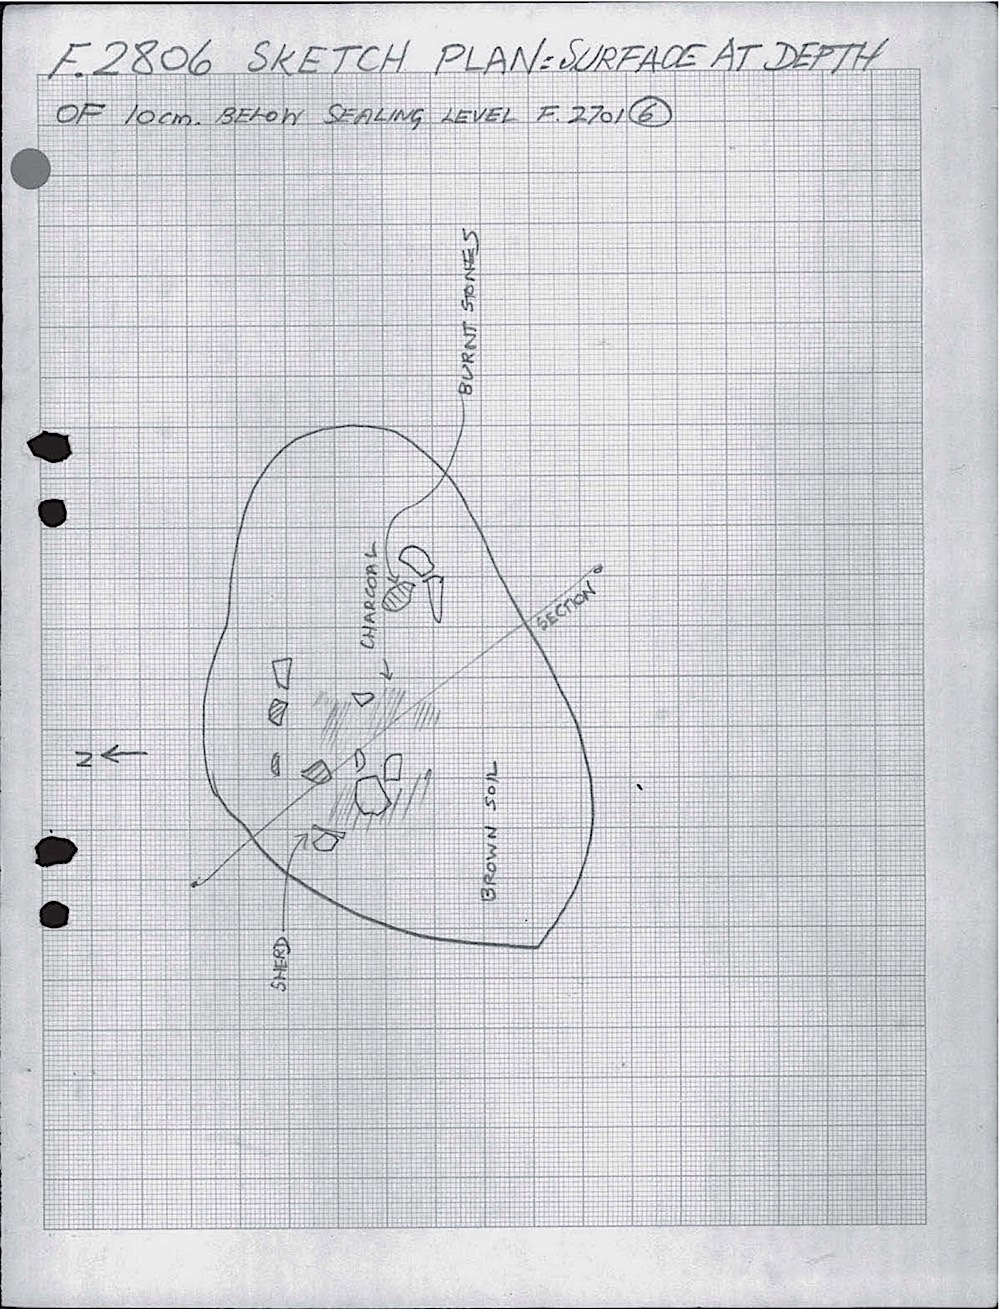 F.2806 SKETCH PLAN: SURFACE AT DEPTH
OF 10cm. BELOW SEALING LEVEL F.2701 ⑥
BURNT STONES
CHARCOAL
SECTION
N
BROWN SOIL
SHERD